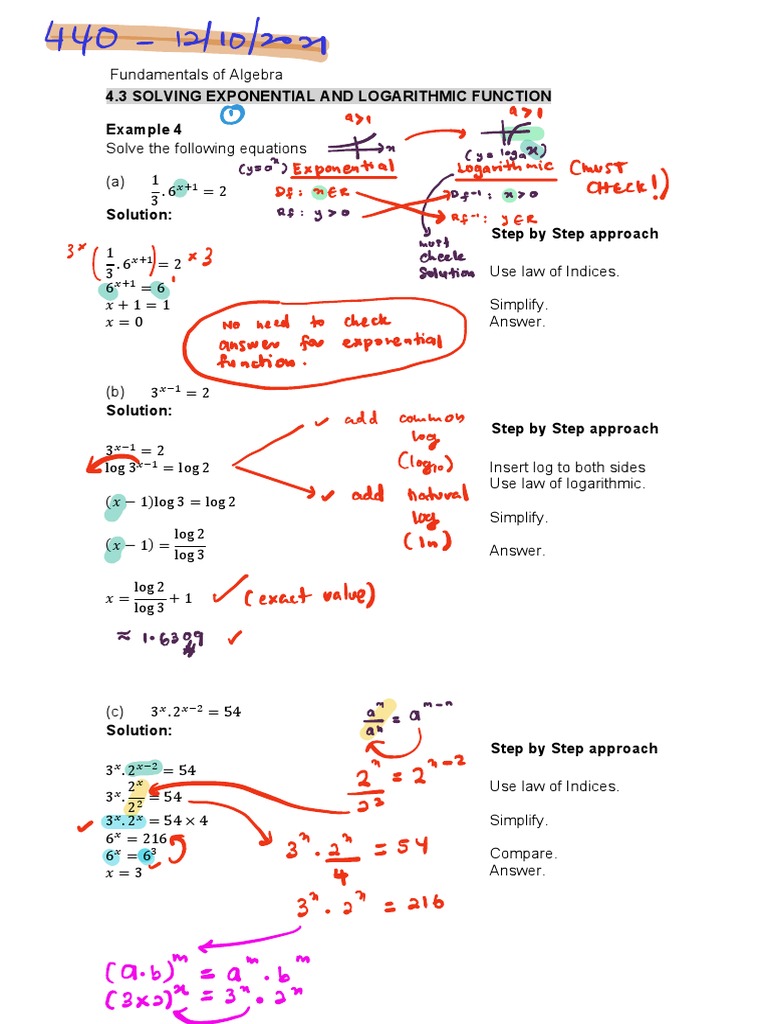 440 - 12/10/2021
Fundamentals of Algebra
4.3 SOLVING EXPONENTIAL AND LOGARITHMIC FUNCTION
①
Example 4
Solve the following equations
a>1
x
a>1
(y=aˣ) Exponential
(y = logₐx)
Logarithmic
(must CHECK!)
Df : x∈R
Rf : y>0
Df⁻¹ : x>0
Rf⁻¹ : y∈R
must
check
solution
(a) 1/3 . 6ˣ⁺¹ = 2
Solution:
Step by Step approach
3 × (1/3 . 6ˣ⁺¹) = 2 × 3
Use law of Indices.
6ˣ⁺¹ = 6¹
x + 1 = 1
Simplify.
x = 0
Answer.
No need to check
answer for exponential
function.
(b) 3ˣ⁻¹ = 2
Solution:
Step by Step approach
3ˣ⁻¹ = 2
log 3ˣ⁻¹ = log 2
Insert log to both sides
Use law of logarithmic.
(x − 1)log 3 = log 2
Simplify.
(x − 1) = log 2/log 3
Answer.
✓ add common
log
(log₁₀)
✓ add natural
log
(ln)
x = log 2/log 3 + 1 ✓ (exact value)
≈ 1.6309 ✓
(c) 3ˣ. 2ˣ⁻² = 54
Solution:
aᵐ/aⁿ = aᵐ⁻ⁿ
Step by Step approach
3ˣ. 2ˣ⁻² = 54
3ˣ. 2ˣ/2² = 54
Use law of Indices.
✓ 3ˣ. 2ˣ = 54 × 4
Simplify.
6ˣ = 216
6ˣ = 6³ ✓
Compare.
x = 3
Answer.
2ˣ/2² = 2ˣ⁻²
3ˣ . 2ˣ/4 = 54
3ˣ . 2ˣ = 216
(a.b)ᵐ = aᵐ . bᵐ
(3×2)ˣ = 3ˣ . 2ˣ